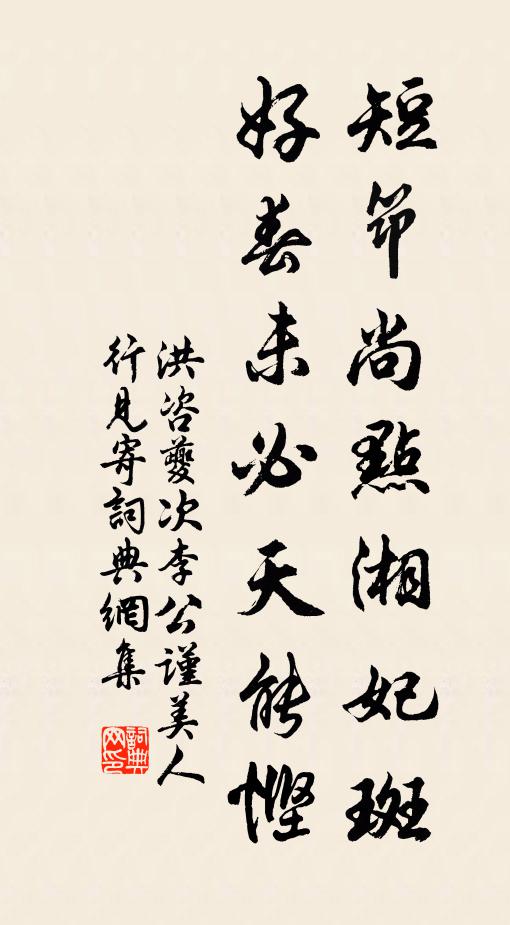 短節尚點湘妃斑
好春未必天能慳
洪咨夔次李公謹美人
行見寄詞典網集
詞典
网印